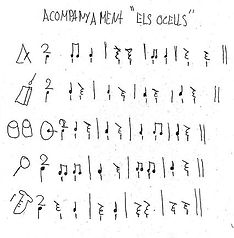 ACOMPANYAMENT "ELS OCELLS"